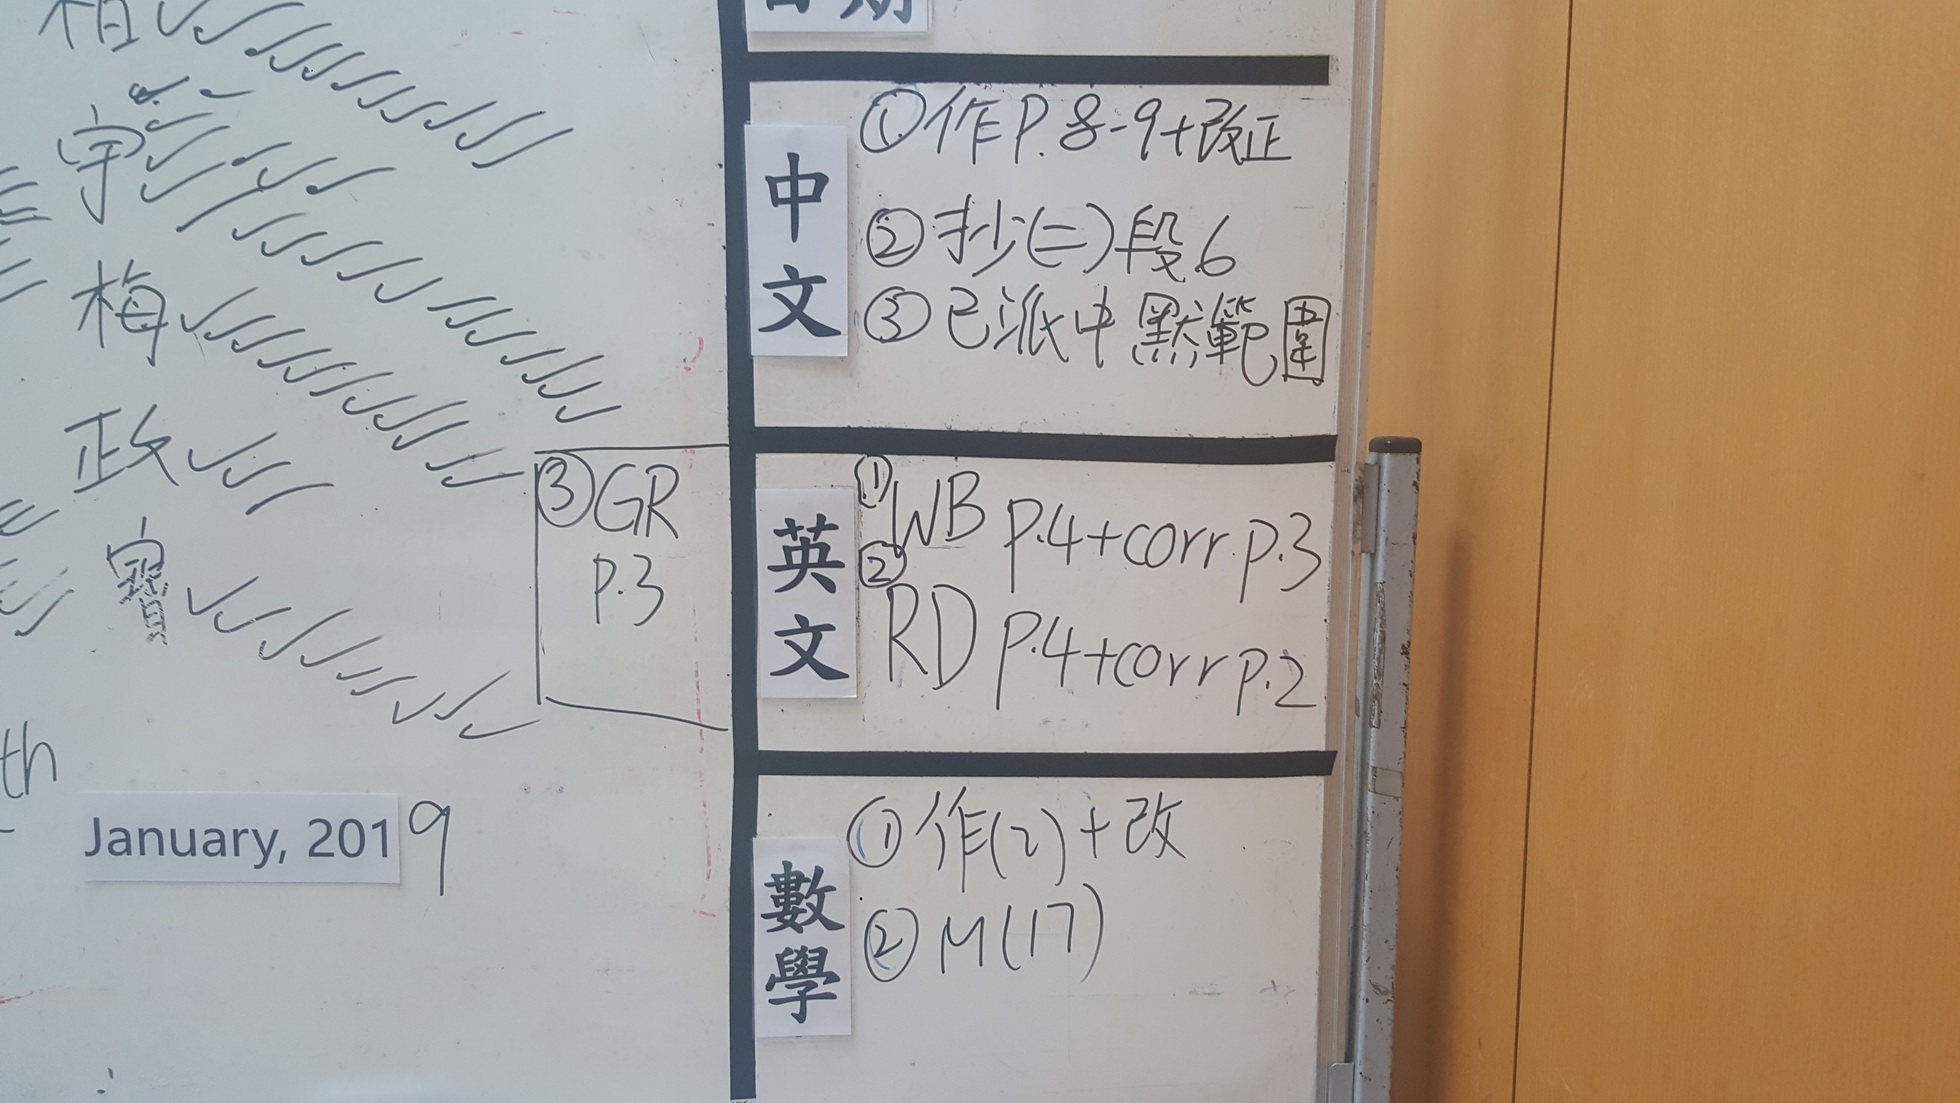 柏
宇
梅
政
寶
③GR
p.3
th
January, 2019
日期
中文
①作P.8-9+改正
②抄(二)段6
③已派中默範圍
英文
①WB p.4+corr.p.3
②RD p.4+corr p.2
數學
①作(2)+改
②M(17)